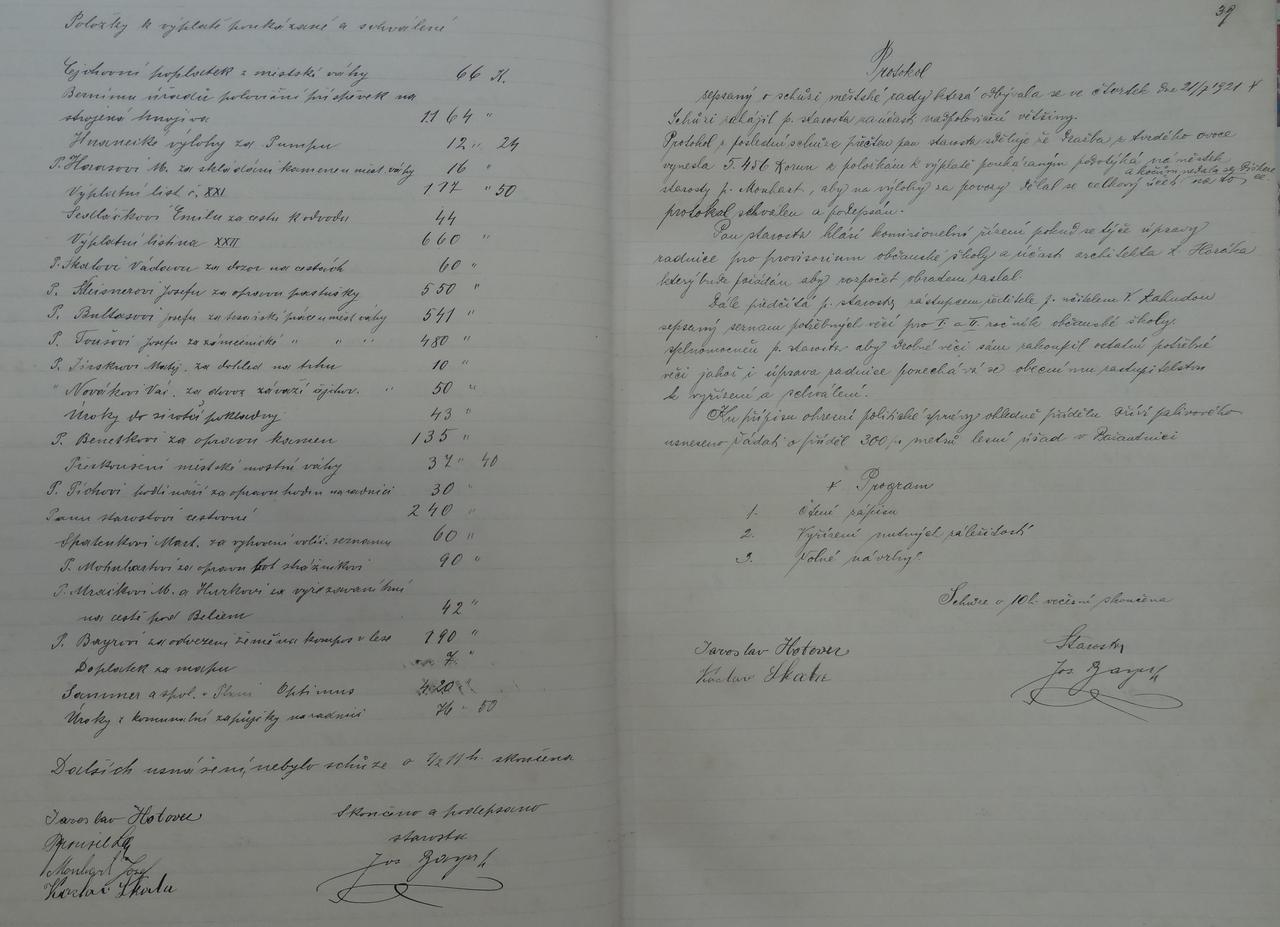 Položky k výplatě poukázané a schválené
Cejchovní poplatek z městské váhy 66 K.
Bernímu úřadu poloviční příspěvek na
strojená hnojiva 1164 "
Hasičské výlohy za Pumpu 12 " 24
P. Harasovi M. za skládání kamene u měst. váhy 16 "
Výplatní list č. XXI 177 " 50
Sedláčkovi Emilu za cestu k odvodu 44
Výplatní listina XXII 660 "
P. Skalovi Václavu za dozor na cestách 60 "
P. Meisnerovi Josefu za opravu pastušky 550 "
P. Bultasovi Josefu za tesařské práce u měst váhy 541 "
P. Toušovi Josefu za zámečnické " " " 480 "
P. Jírskovi Matěj. za dohled na trhu 10 "
" Novákovi Vác. za dovoz závaží cejchov. " 50 "
Úroky do sirotčí pokladny 43 "
P. Beneškovi za opravu kamen 135 "
Přezkoušení městské mostní váhy 37 " 40
P. Píchovi hodináři za opravu hodin na radnici 30 "
Panu starostovi cestovné 240 "
Špatenkovi Mart. za vyhovení volič. seznamu 60 "
P. Mohnhartovi za opravu bot strážníkovi 90 "
P. Mrázkovi M. a Hurkovi za vyřezávání
na cestě pod Belčem 42 "
P. Bayrovi za odvezení země na kompos v lese 190 "
Doplatek za mapu 7 "
Sammer a spol. v Plzni Optimus 420 "
Úroky z komunální zápůjčky na radnici 76 " 50
Dalších usnášení nebylo schůze o 1/2 11 h. skončena
Jaroslav Hotovec Skončeno a podepsáno
starosta
Monhart Josef Jos Bayer
Václav Skala
39
Protokol
sepsaný o schůzi městské rady která odbývala se ve čtvrtek dne 21/7 1921 +
Schůzi zahájil p. starosta za účasti nadpoloviční většiny.
Protokol z poslední schůze přečten pan starosta sděluje že dražba z tvrdého ovoce
vynesla 5.456 Korun k položkám k výplatě poukázaným podotýká náměstek
starosty p. Monhart, aby na výlohy za povozy dělal se celkový účet na to
protokol schválen a podepsán.
Pan starosta hlásí komisionelní řízení pokud se týče úpravy
radnice pro provisorium občanské školy a účasti architekta z Horáka
který bude požádán aby rozpočet obratem zaslal.
Dále předčítá p. starosta zástupcem ředitele p. učitelem V. Zahudou
sepsaný seznam potřebných věcí pro I. a II. ročník občanské školy.
splnomocněn p. starosta aby drobné věci sám zakoupil ostatní potřebné
věci jakož i úprava radnice ponechává se obecnímu zastupitelstvu
k vyřízení a schválení.
Ku přípisu okresní politické správy ohledně přídělu dříví palivového
usneseno žádati o příděl 300 p. metrů lesní úřad v Bažantnici
+ Program
1. Čtení zápisu
2. Vyřízení nutných záležitostí
3. Volné návrhy.
Schůze o 10 h. večerní skončena
Jaroslav Hotovec Starosta
Václav Skala Jos Bayer